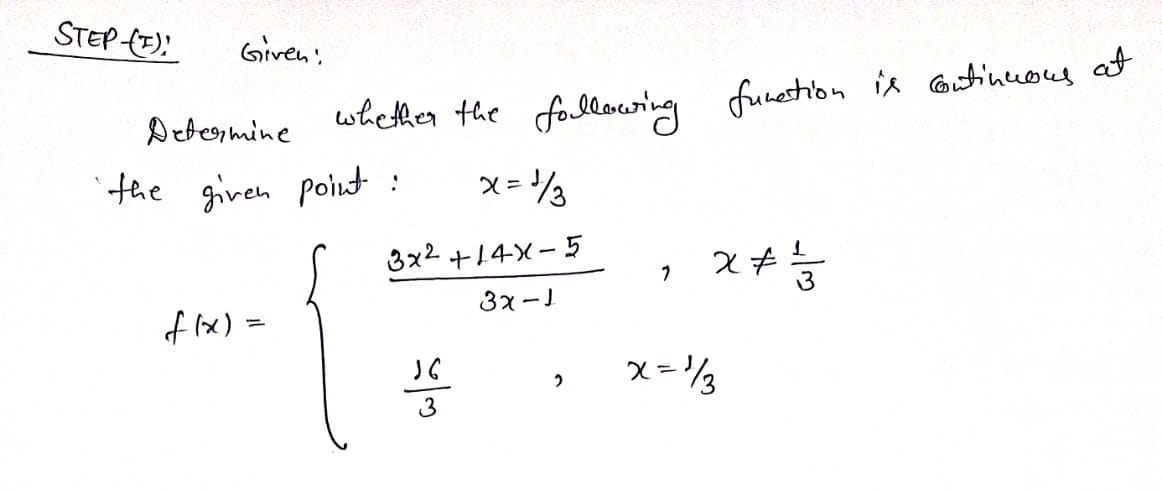 STEP-(I):   Given:
Determine whether the following function is continuous at
the given point :   x = 1/3
f(x) = { (3x² + 14x - 5)/(3x - 1) , x ≠ 1/3
16/3 , x = 1/3